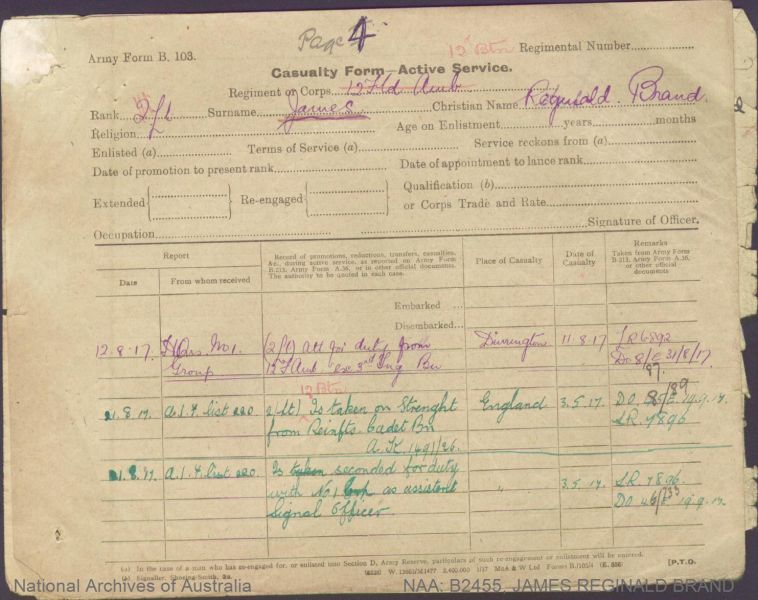 Page 4
Army Form B. 103.
12 Btn Regimental Number
Casualty Form—Active Service.
Regiment or Corps 12 Fld Amb.
Rank 2/Lt Surname James Christian Name Reginald Brand.
Religion Age on Enlistment years months
Enlisted (a) Terms of Service (a) Service reckons from (a)
Date of promotion to present rank Date of appointment to lance rank
Extended Re-engaged Qualification (b)
or Corps Trade and Rate
Occupation Signature of Officer.
Report
Date
From whom received
Record of promotions, reductions, transfers, casualties,
&c., during active service, as reported on Army Form
B.213, Army Form A.36, or in other official documents.
The authority to be quoted in each case.
Place of Casualty
Date of
Casualty
Remarks
Taken from Army Form
B.213, Army Form A.36,
or other official
documents
Embarked
Disembarked
12.8.17. Hdqrs. No 1. (2/Lt) att for duty from Durrington 11.8.17 LR 6892
Group 12 F Amb. 3rd Trg Bn DO 81/E 31/8/17.
12 Btn 87.
21.8.17. A.I.F list 220 2(Lt) Is taken on Strenght England 3.5.17. DO 89 14.9.17.
from Reinfts. Cadet Bn LR. 7896
A.K. 1491/26.
21.8.17. A.I.F list 220. Is taken seconded for duty " 3.5.17. LR 7896.
with No. 1 Group as assistant DO 46/233 19.9.17.
Signal Officer.
(a) In the case of a man who has re-engaged for, or enlisted into Section D, Army Reserve, particulars of such re-engagement or enlistment will be entered.
(b) Signaller, Shoeing-Smith, &c. 2,400,000 1/17 McA & W Ltd Forms B./103/4 (E. 656) [P.T.O.
National Archives of Australia NAA: B2455, JAMES REGINALD BRAND